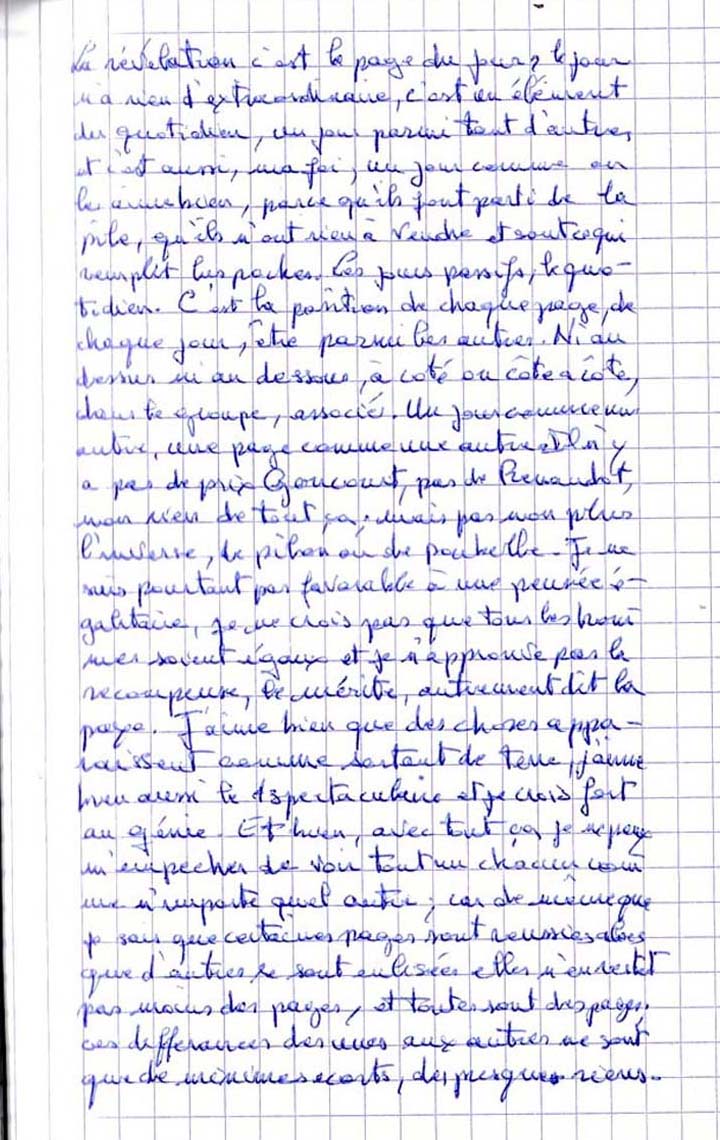 La révélation c'est la page du jour, le jour
n'a rien d'extraordinaire, c'est un élément
du quotidien, un jour parmi tant d'autres,
et c'est aussi, ma foi, un jour comme on
les aime bien, parce qu'ils font parti de la
pile, qu'ils n'ont rien à vendre et sont ce qui
remplit les poches. Les jours passifs, le quo-
tidien. C'est la position de chaque page, de
chaque jour, être parmi les autres. Ni au
dessus ni au dessous, à coté ou côte à côte,
dans le groupe, associé. Un jour comme un
autre, une page comme une autre. Il n'y
a pas de prix Goncourt, pas de Renaudot,
non rien de tout ça, mais pas non plus
l'inverse, de pilon ou de poubelle. Je ne
suis pourtant pas favorable à une pensée é-
galitaire, je ne crois pas que tous les hom
mes soient égaux et je n'approuve pas la
recompense, le mérite, autrement dit la
paye. J'aime bien que des choses appa-
raissent comme sortant de terre, j'aime
bien aussi le spectaculaire et je crois fort
au génie. Et bien, avec tout ça je ne peux
m'empecher de voir tout un chacun com
me n'importe quel autre ; car de même que
je sais que certaines pages sont reussies alors
que d'autres se sont enlisées elles n'en restent
pas moins des pages, et toutes sont des pages,
ces differences des unes aux autres ne sont
que de minimes ecarts, des presques riens.